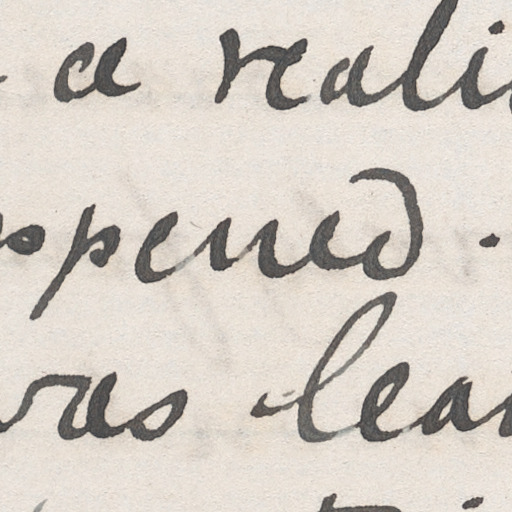 a reali
ppened.
was lear